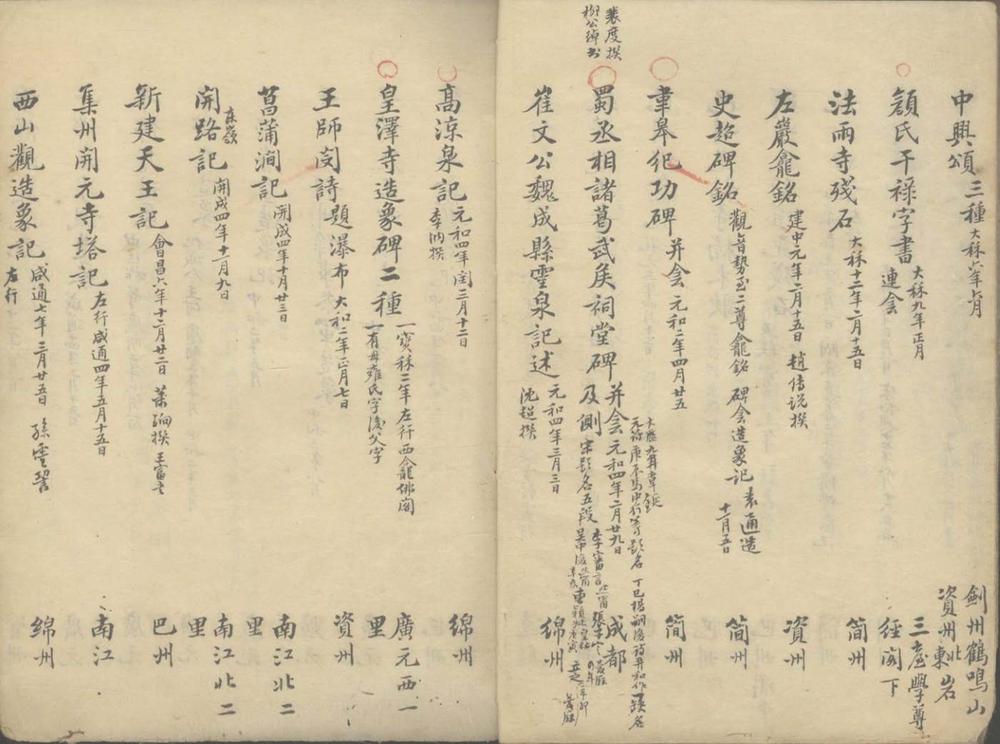 中興頌 三種 大秝六年六月 劍州鶴鳴山 資州北岩
顏氏干祿字書 大秝九年正月 連侌 三臺學尊經閣下
法雨寺殘石 大秝十二年二月十五日 簡州
左巖龕銘 建中元年二月十五日 趙傳說撰 資州
史超碑銘 觀音勢至二尊龕銘 碑侌造象記 十一月五日 簡州
韋皋紀功碑 并侌 元和二年四月廿五 簡州
裴度撰
柳公綽書
蜀丞相諸葛武矦祠堂碑 并侌 元和四年二月廿九日 及側 宋題名五段 成都
崔文公魏成縣靈泉記述 元和四年三月三日 沈超撰 綿州
高涼泉記 元和四年閏三月十二日 李納撰 綿州
皇澤寺造象碑二種 一寶秝二年左行西龕佛閣 一有母雍氏字後父字 廣元西一里
王師閔詩 題瀑布 大和二年正月七日 資州
菖蒲澗記 開成四年十月廿三日 南江北二里
開路記 開成四年十一月九日 南江北二里
新建天王記 會昌六年十二月廿二日 巴州
集州開元寺塔記 左行 咸通四年五月十五日 南江
西山觀造象記 咸通七年三月廿五日 孫靈諅 左行 綿州